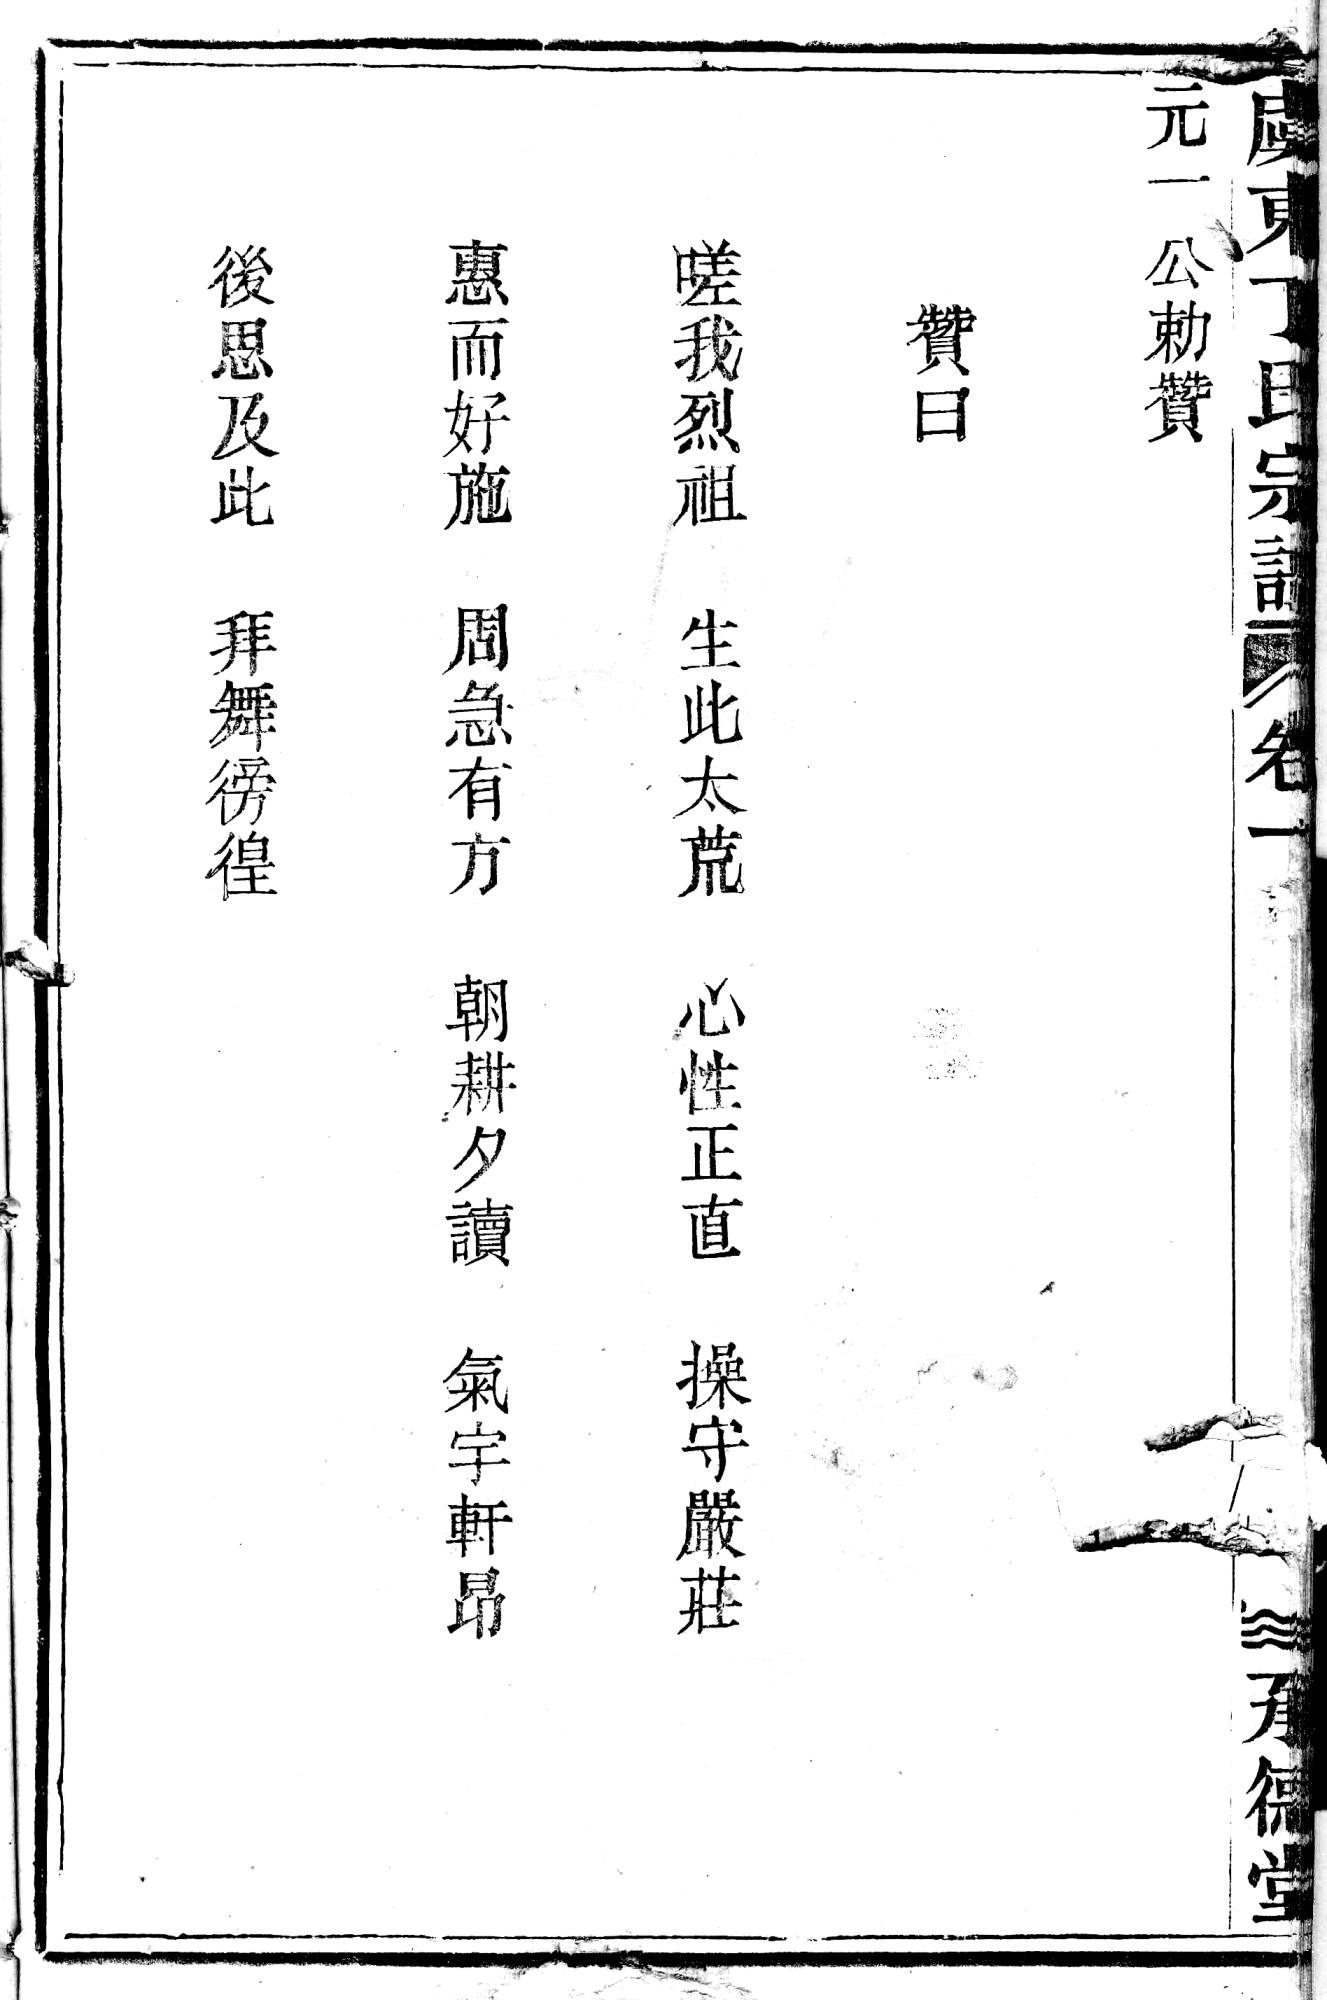 虞東丁氏宗譜 卷一 承德堂
元一 公勅贊
贊曰
嗟我烈祖 生此太荒 心性正直 操守嚴莊
惠而好施 周急有方 朝耕夕讀 氣宇軒昂
後思及此 拜舞徬徨